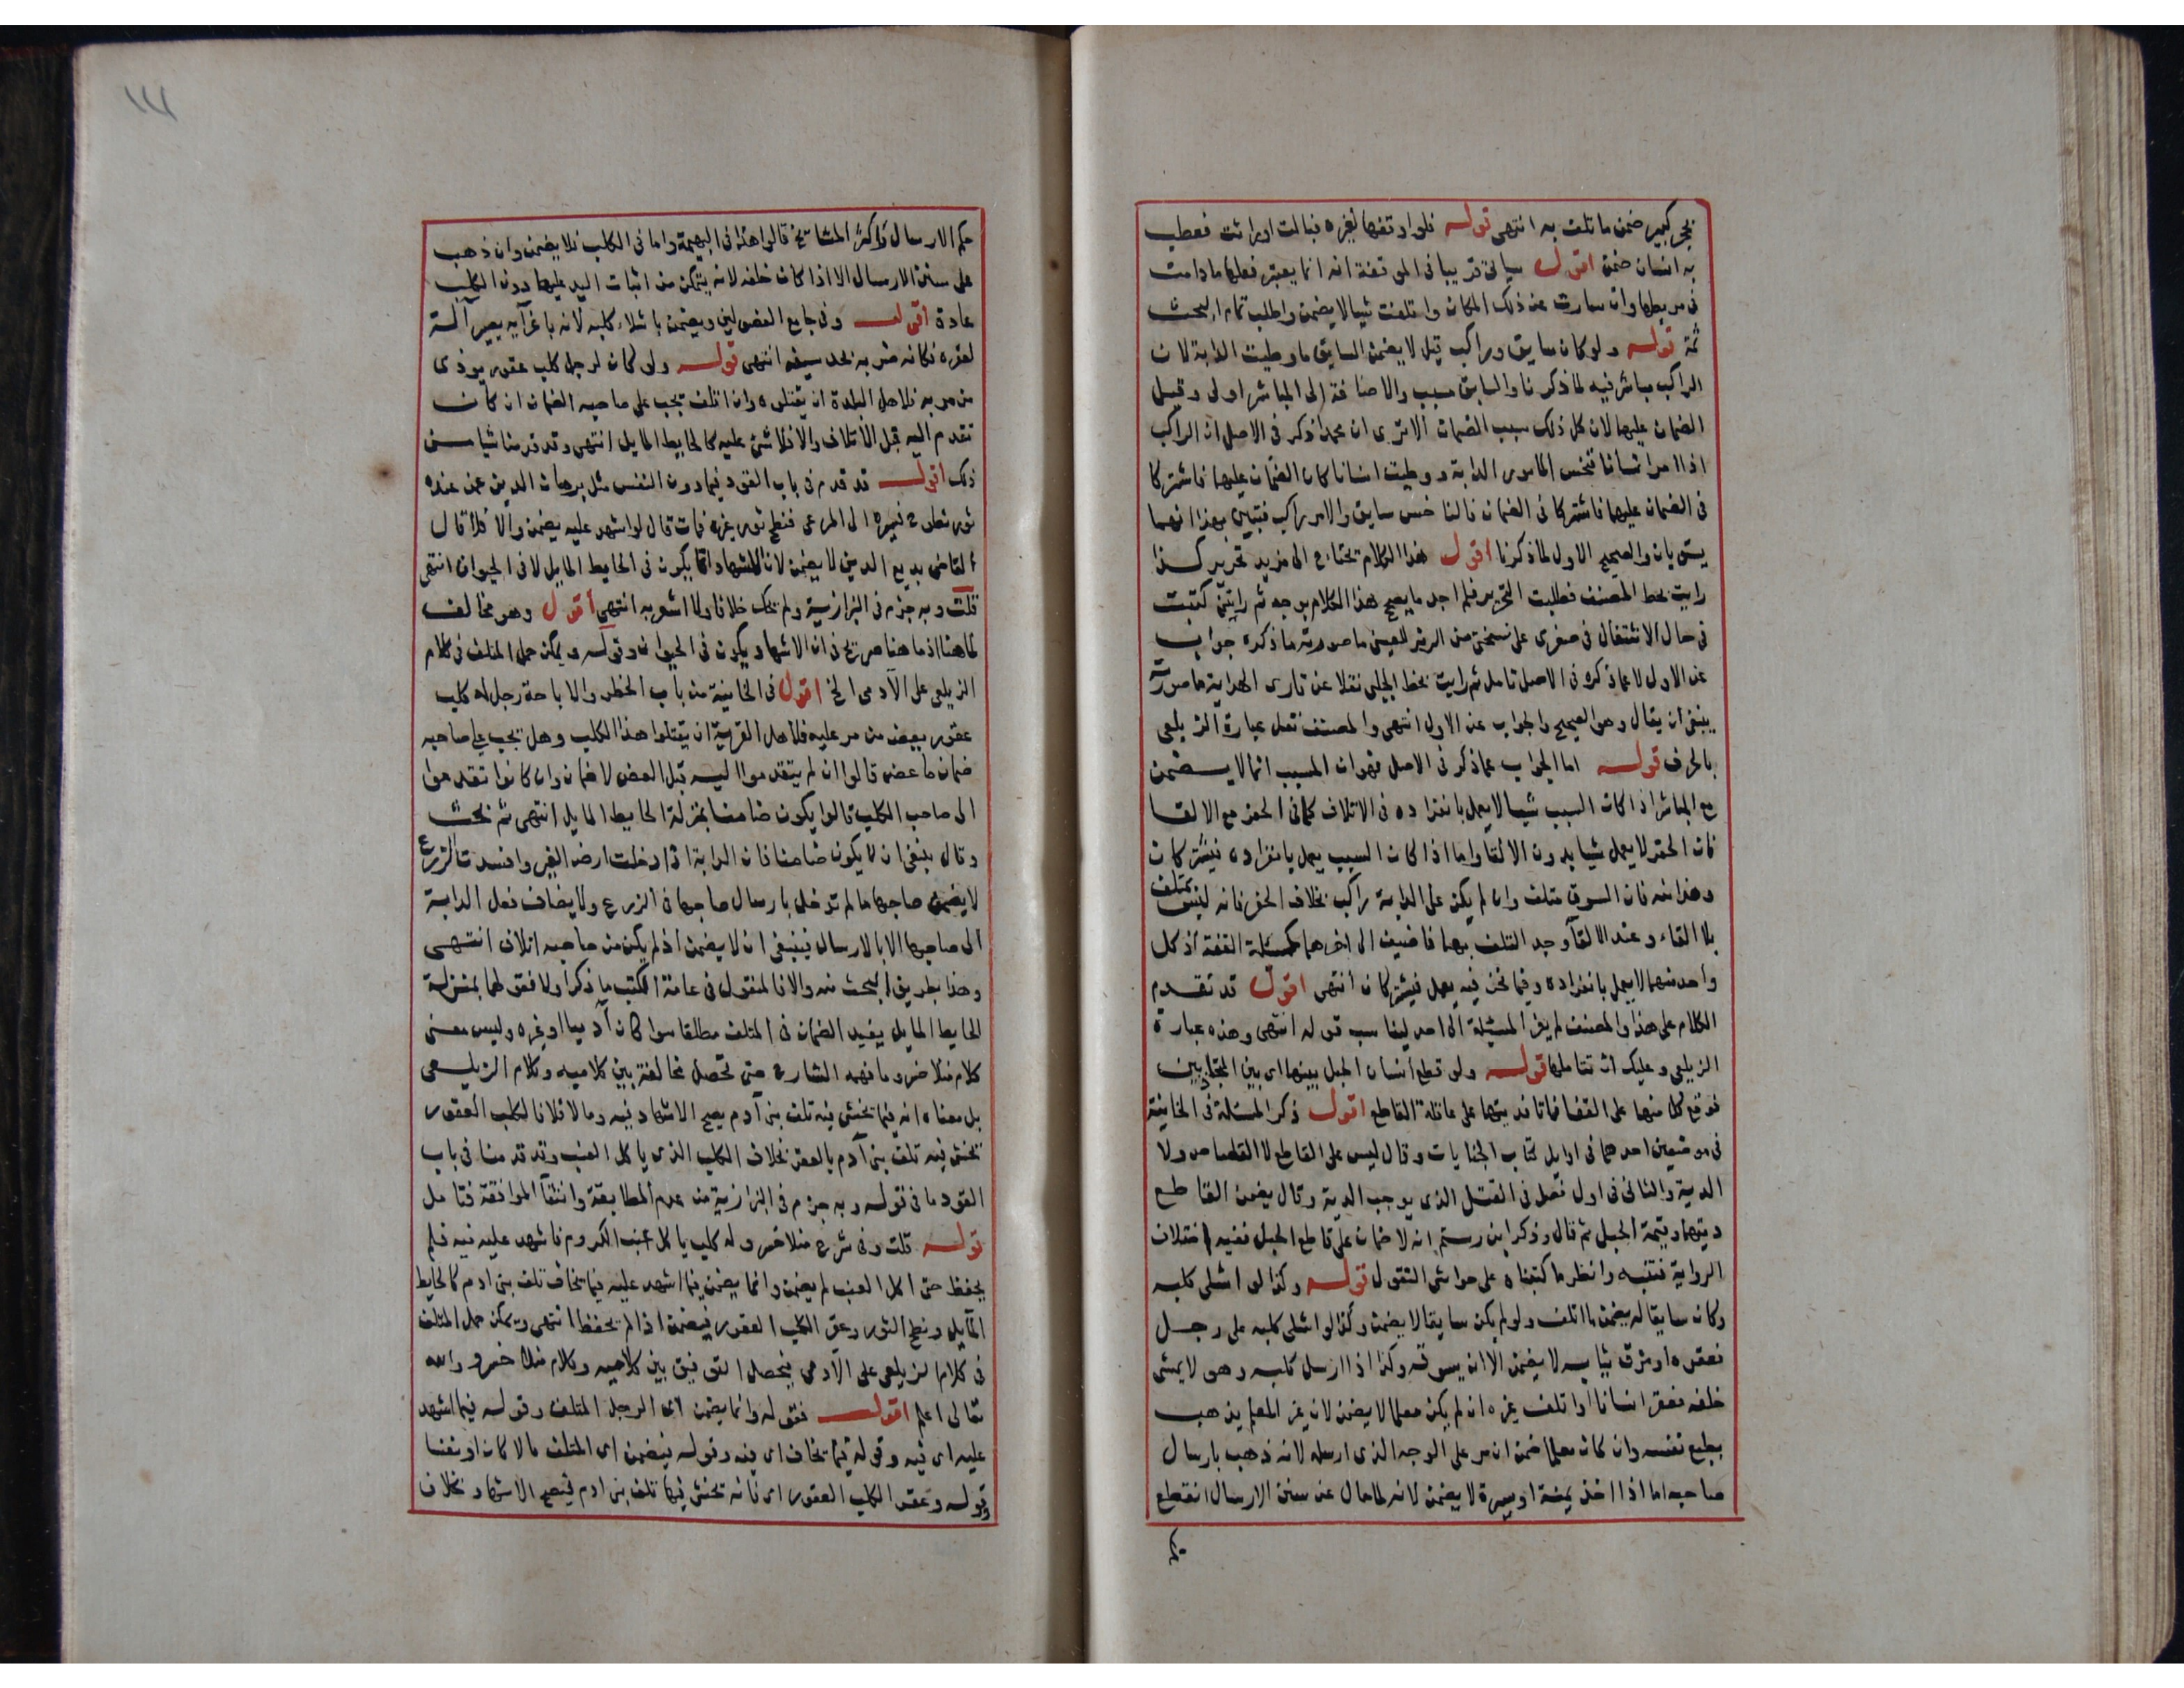 بحجر كبير ضمن ما تلف به انتهى قوله فلو اوقفها لغيره فبالت او راثت فعطب
به انسان ضمن اقول سياتي قريبا في الموقفة انه انما يعتبر فعلها ما دامت
في مربطها وان سارت عن ذلك المكان واتلفت شيا لا يضمن واطلب تمام البحث
ثمة قوله ولو كان سايق وراكب قيل لا يضمن السايق ما وطيت الدابة لان
الراكب مباشر فيه لما ذكرنا والسايق مسبب والاضافة الى المباشر اولى وقيل
الضمان عليهما لان كل ذلك سبب الضمان الا ترى ان محمدا ذكر في الاصل ان الراكب
اذا امر انسانا فنخس المامور الدابة ووطيت انسانا كان الضمان عليهما فاشتركا
في الضمان عليهما فاشتركا في الضمان فالناخس سايق والامر راكب فتبين بهذا انهما
يستويان والصحيح الاول لما ذكرنا اقول هذا الكلام يحتاج الى مزيد تحرير كذا
رايت بخط المصنف فطلبت التحرير فلم اجد ما يصحح هذا الكلام بوجه ثم رايتني كتبت
في حال الاشتغال في صغري على نسختي من الرمز للعيني ما صورته ما ذكره جواب
عن الاول لا عما ذكره في الاصل تامل ثم رايت بخط الجلبي نقلا عن قارى الهداية ما صورته
ينبغي ان يقال وهو الصحيح والجواب عن الاول انتهى والمصنف نقل عبارة الزيلعي
بالحرف قوله اما الجواب عما ذكر في الاصل فهو ان المسبب انما لا يضمن
مع المباشر اذا كان السبب شيا لا يعمل بانفراده في الاتلاف كما في الحفر مع الالقا
فان الحفر لا يعمل شيا بدون الالقا واما اذا كان السبب يعمل بانفراده فيشتركان
وهذا منه فان السوق متلف وان لم يكن على الدابة راكب بخلاف الحفر فانه ليس بمتلف
بلا القاء وعند الالقآ وجد التلف بهما فاضيف الى اخرهما كمسئلة القفة اذ كل
واحد منهما لا يعمل بانفراده وفيما نحن فيه يعمل فيشتركان انتهى اقول قد تقدم
الكلام على هذا والمصنف لم يعز المسئلة الى احد ليناسب قوله انتهى وهذه عبارة
الزيلعي وعليك ان تتاملها قوله ولو قطع انسان الحبل بينهما اى بين المتجاذبين
فوقع كل منهما على القفا فماتا فديتهما على عاقلة القاطع اقول ذكر المسئلة في الخانية
في موضعين احدهما في اوايل كتاب الجنايات وقال ليس على القاطع لا القصاص ولا
الدية والثاني في اول فصل في القتل الذى يوجب الدية وقال يضمن القاطع
ديتهما وقيمة الحبل ثم قال وذكر ابن رستم انه لا ضمان على قاطع الحبل ففيه اختلاف
الرواية فتنبه وانظر ما كتبناه على حواشي النقول قوله وكذا لو اشلى كلبه
وكان سايقا له يضمن ما اتلف ولو لم يكن سايقا لا يضمن وكذا لو اشلى كلبه على رجل
فعقره او مزق ثيابه لا يضمن الا ان يسوقه وكذا اذا ارسل كلبه وهو لا يمشي
خلفه فعقر انسانا او اتلف غيره ان لم يكن معلما لا يضمن لان غير المعلم يذهب
بطبع نفسه وان كان معلما ضمن ان مر على الوجه الذى ارسله لانه ذهب بارسال
صاحبه اما اذا اخذ يمنة او يسرة لا يضمن لانه لما مال عن سنن الارسال انقطع
حكم الارسال واكثر المشايخ قالوا هذا في البهيمة واما في الكلب فلا يضمن وان ذهب
على سنن الارسال الا اذا كان خلفه لانه يتمكن من اثبات اليد عليها دون الكلب
عادة اقول وفي جامع الفصولين ويضمن باشلاء كلبه لانه باغرآيه يصير آلة
لعقره فكانه ضربه بحد سيفه انتهى قوله ولو كان لرجل كلب عقور يوذى
من مر به فلاهل البلدة ان يقتلوه وان اتلف يجب على صاحبه الضمان ان كان
تقدم اليه قبل الاتلاف والا فلا شئ عليه كالحايط المايل انتهى وقد قدمنا شيا من
ذلك اقول قد قدم في باب القود فيما دون النفس مثل برهان الدين عمن عنده
ثور نطوح فسيره الى المرعى فنطح ثور غيره فمات قال لو اشهد عليه يضمن والا فلا قال
القاضي بديع الدين لا يضمن لان الاشهاد انما يكون في الحايط المايل لا في الحيوان انتهى
قلت وبه جزم في البزازية ولم يحك خلافا ولا اشعر به انتهى اقول وهو مخالف
لما هنا اذ ما هنا صريح في ان الاشهاد يكون في الحيوان وقوله ويمكن حمل المتلف في كلام
الزيلعي على الآدمي الخ اقول في الخانية من باب الحظر والاباحة رجل له كلب
عقور يعض من مر عليه فلاهل القرية ان يقتلوا هذا الكلب وهل يجب على صاحبه
ضمان ما عض قالوا ان لم يتقدموا اليه قبل العض لا ضمان وان كانوا تقدموا
الى صاحب الكلب قالوا يكون ضامنا بمنزلة الحايط المايل انتهى ثم بحث
وقال ينبغي ان لا يكون ضامنا فان الدابة اذا دخلت ارض الغير وافسدت الزرع
لا يضمن صاحبها ما لم تدخل بارسال صاحبها في الزرع ولا يضاف فعل الدابة
الى صاحبها الا بالارسال فينبغي ان لا يضمن اذ لم يكن من صاحبه اتلاف انتهى
وهذا بطريق البحث منه والا فالمنقول في عامة الكتب ما ذكر اولا فقولهما بمنزلة
الحايط المايل يفيد الضمان في المتلف مطلقا سوا كان آدميا او غيره وليس معنى
كلام منلا خسرو ما فهمه الشارح حتى تحصل مخالفة بين كلاميه وكلام الزيلعي
بل معناه انه فيما يخشى فيه تلف بني آدم يصح الاشهاد فيه وما لا فلا فالكلب العقور
يخشى فيه تلف بني آدم بالعقر بخلاف الكلب الذى ياكل العنب وقد قدمنا في باب
القود ما في قوله وبه جزم في البزازية من عدم المطابقة وانتفآ الموافقة فتامل
قوله قلت وفي شرح منلا خسرو له كلب ياكل عنب الكروم فاشهد عليه فيه فلم
يحفظ حتى اكل العنب لم يضمن وانما يضمن فيما اشهد عليه فيما يخاف تلف بني ادم كالحايط
المآيل ونطح الثور وعقر الكلب العقور فيضمن اذا لم يحفظ انتهى ويمكن حمل المتلف
في كلام الزيلعي على الآدمي فيحصل التوفيق بين كلاميه وكلام منلا خسرو والله
تعالى اعلم اقول فقوله وانما يضمن اى الرجل المتلف وقوله فيما اشهد
عليه اى فيه وقوله فيما يخاف اى فيه وقوله فيضمن اى المتلف مالا كان او نفسا
وقوله وعقر الكلب العقور اى فانه يخشى فيها تلف بني ادم فيصح الاشهاد بخلاف